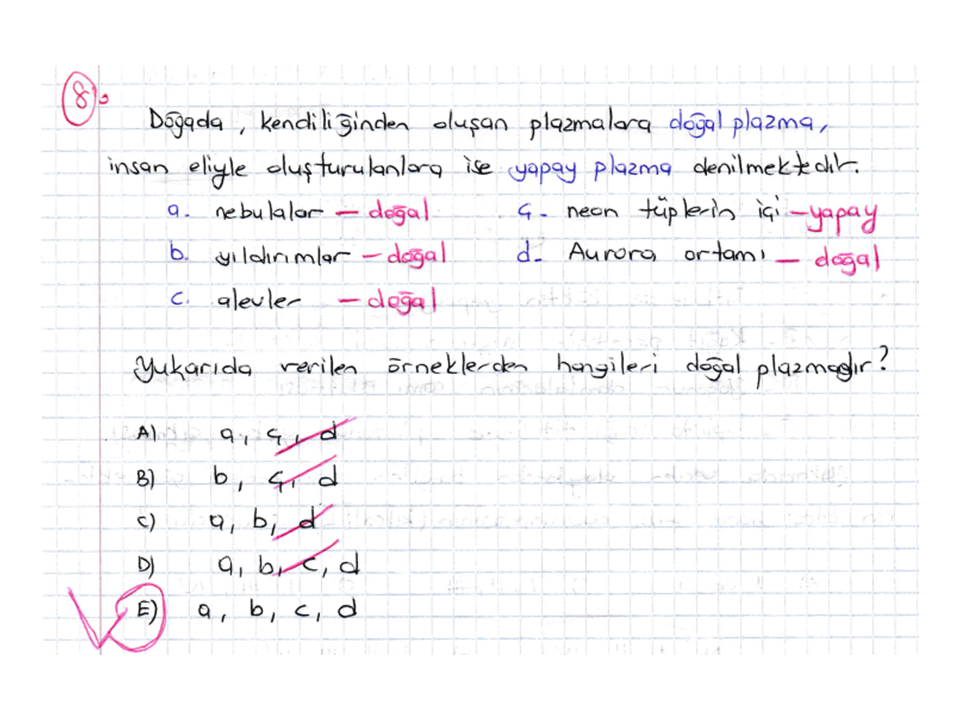 8.
Doğada, kendiliğinden oluşan plazmalara doğal plazma,
insan eliyle oluşturulanlara ise yapay plazma denilmektedir.
a. nebulalar — doğal ç. neon tüplerin içi — yapay
b. yıldırımlar — doğal d. Aurora ortamı — doğal
c. alevler — doğal
Yukarıda verilen örneklerden hangileri doğal plazmadır?
A) a, ç, d
B) b, ç, d
C) a, b, d
D) a, b, c, d
E) a, b, c, d